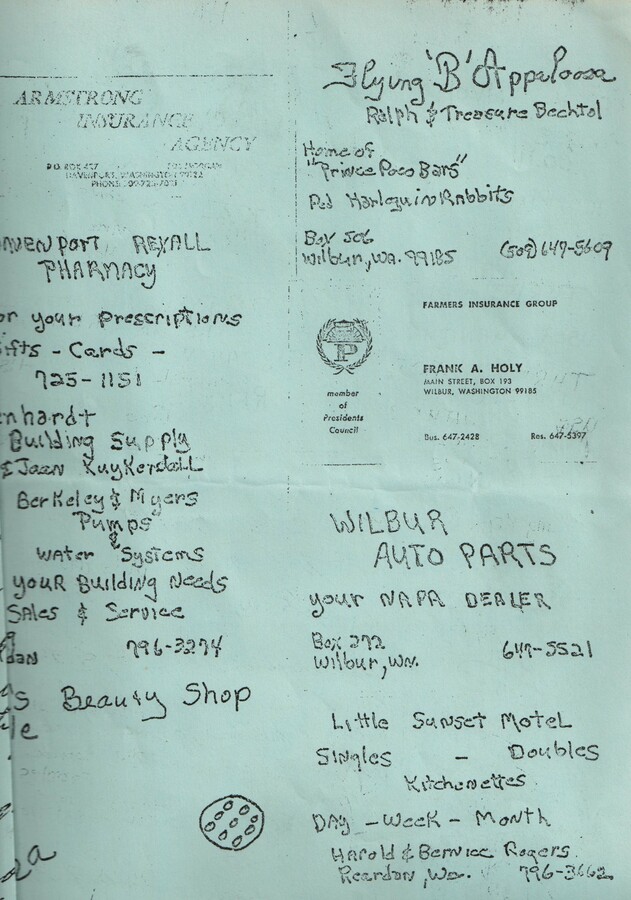 ARMSTRONG
INSURANCE
AGENCY
P.O. BOX 457
DAVENPORT, WASHINGTON 99122
PHONE:
AVENPORT REXALL
PHARMACY
or your Prescriptions
ifts - Cards -
725-1151
enhardt
Building Supply
& Joan Kuykendall
Berkeley & Myers
"Pumps"
&
Water "Systems
your Building Needs
Sales & Service
dan 796-3274
s Beauty Shop
Flying 'B' Appaloosa
Ralph & Treasure Bechtol
Home of
"Prince Poco Bars"
Ped Harlequin Rabbits
Box 506
Wilbur, Wa. 99185 (509) 647-5609
FARMERS INSURANCE GROUP
P
member
of
Presidents
Council
FRANK A. HOLY
MAIN STREET, BOX 193
WILBUR, WASHINGTON 99185
Bus. 647-2428 Res. 647-5397
WILBUR
AUTO PARTS
your NAPA DEALER
Box 272
Wilbur, Wn. 647-5521
Little Sunset Motel
Singles - Doubles
Kitchenettes
DAY - Week - Month
Harold & Bernice Rogers
Reardan, Wa. 796-3662